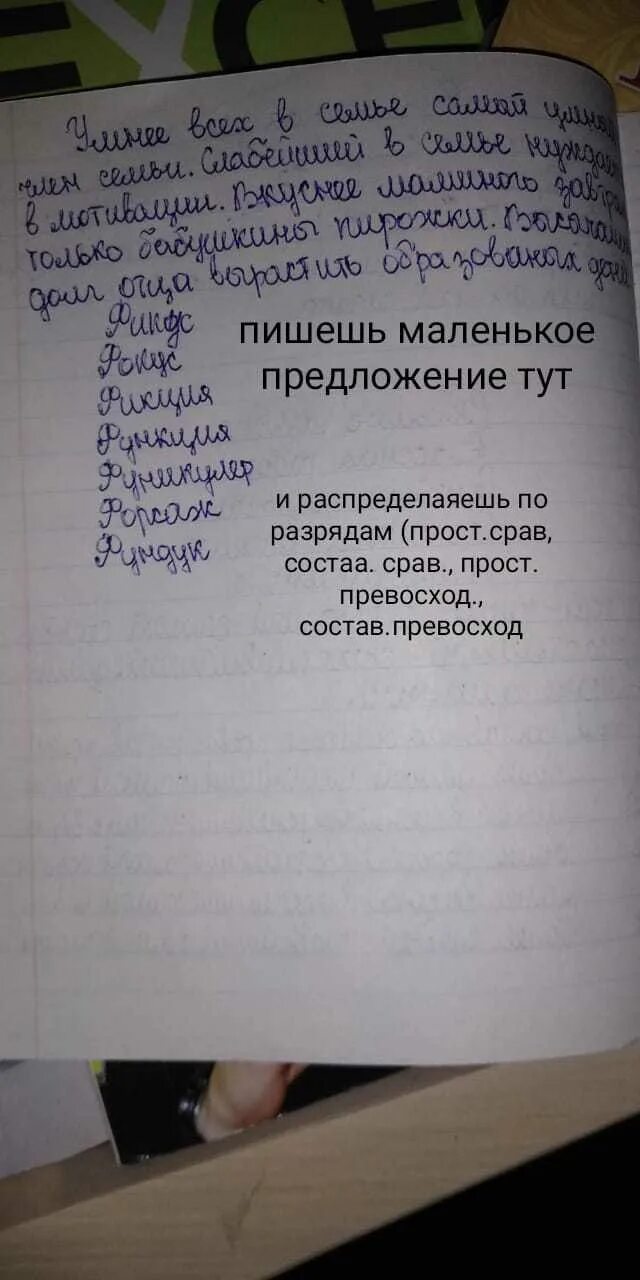 Умнее всех в семье самой
член семьи. Слабейший в семье
в мотивации. Вкуснее маминого
только бабушкины пирожки.
долг отца вырастить образованых
Фикус
Фокус
Фикция
Функция
Фуникулер
Форсаж
Фундук
пишешь маленькое
предложение тут
и распределаяешь по
разрядам (прост.срав,
состаа. срав., прост.
превосход.,
состав.превосход